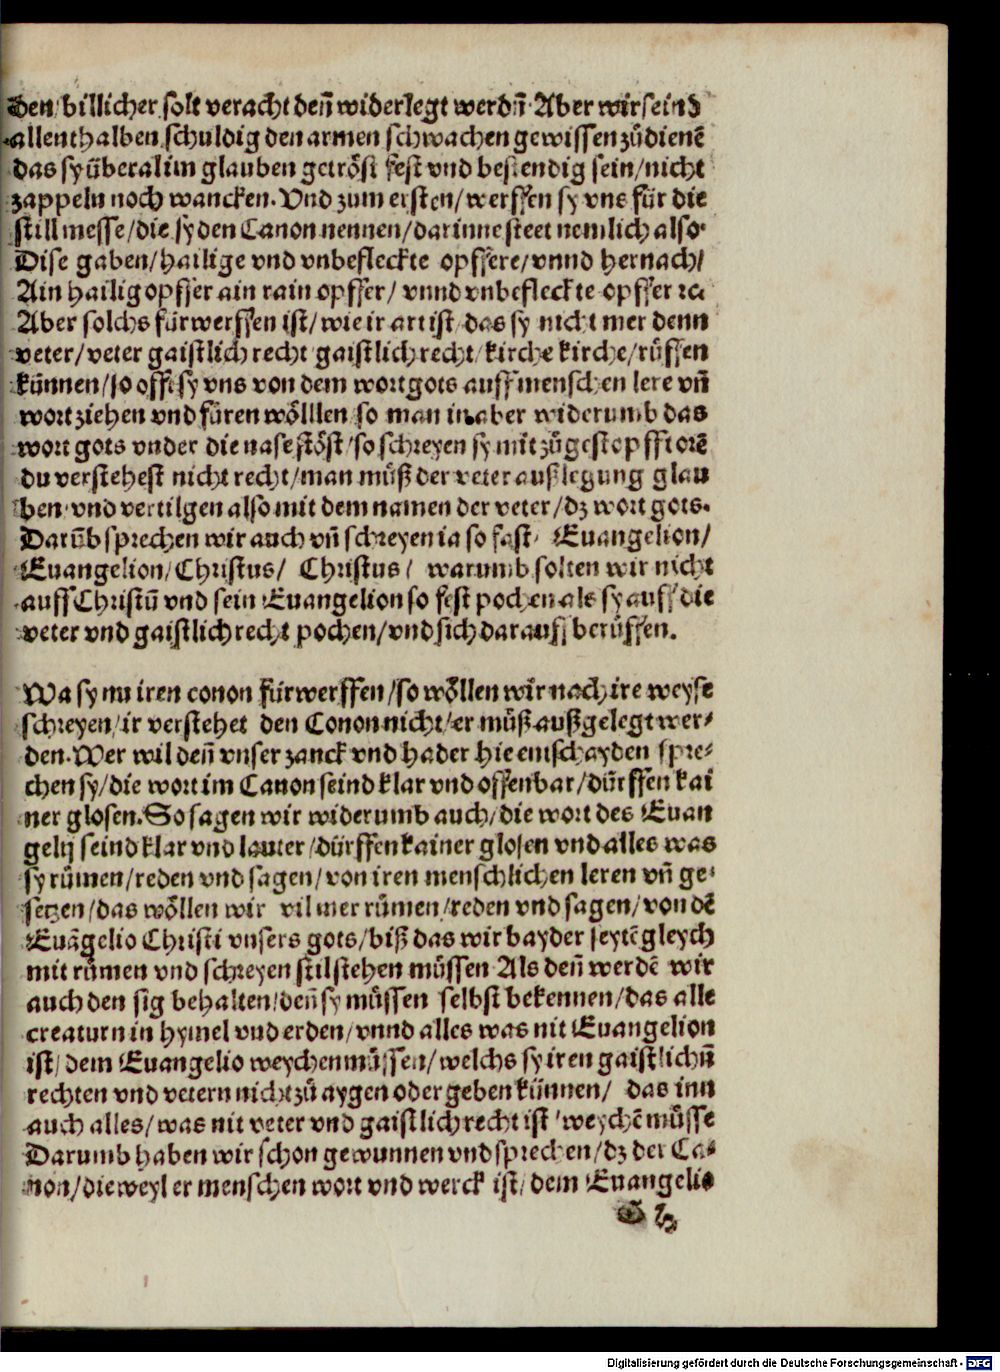 den billicher solt veracht deñ widerlegt werdñ. Aber wir seind
allenthalben schuldig den armen schwachen gewissen zů dienē
das sy überal im glauben getröst fest vnd bestendig sein/nicht
zappeln noch wancken. Vnd zum ersten/werffen sy vns für die
still messe/die sy den Canon nennen/darinne steet nemlich also.
Dise gaben/hailige vnd vnbefleckte opffere/vnnd hernach/
Ain hailig opffer ain rain opffer/ vnnd vnbefleckte opffer ꝛc.
Aber solchs fürwerffen ist/wie ir art ist/das sy nicht mer denn
veter/veter gaistlich recht gaistlich recht/kirche kirche/rüffen
künnen/so offt sy vns von dem wort gots auff menschen lere vñ
wort ziehen vnd füren wöllen so man in aber widerumb das
wort gots vnder die nase stöst/so schreyen sy mit zůgestopfftorē
du verstehest nicht recht/man můß der veter außlegung glau
ben vnd vertilgen also mit dem namen der veter/dz wort gots.
Darūb sprechen wir auch vñ schreyen ia so fast/ Euangelion/
Euangelion/Christus/ Christus/ warumb solten wir nicht
auff Christū vnd sein Euangelion so fest pochen als sy auff die
veter vnd gaistlich recht pochen/vnd sich darauff berüffen.
Wa sy nu iren conon fürwerffen/so wöllen wir nach ire weyse
schreyen/ir verstehet den Conon nicht/er můß außgelegt wer-
den. Wer wil deñ vnser zanck vnd hader hie entschayden spre-
chen sy/die wort im Canon seind klar vnd offenbar/dürffen kai
ner glosen. So sagen wir widerumb auch/die wort des Euan
gelij seind klar vnd lauter/dürffen kainer glosen vnd alles was
sy rümen/reden vnd sagen/von iren menschlichen leren vñ ge-
setzen/das wöllen wir vil mer rümen/reden vnd sagen/von dē
Euāgelio Christi vnsers gots/biß das wir bayder seytē gleych
mit rümen vnd schreyen stil stehen müssen Als deñ werdē wir
auch den sig behalten/deñ sy müssen selbst bekennen/das alle
creaturn in hymel vnd erden/vnnd alles was nit Euangelion
ist/dem Euangelio weychen müssen/welchs sy iren gaistlichñ
rechten vnd vetern nicht zů aygen oder geben künnen/ das inn
auch alles/was nit veter vnd gaistlich recht ist/weychē müsse
Darumb haben wir schon gewunnen vnd sprechen/dz der Ca-
non/die weyl er menschen wort vnd werck ist/dem Euangelio
Digitalisierung gefördert durch die Deutsche Forschungsgemeinschaft - DFG